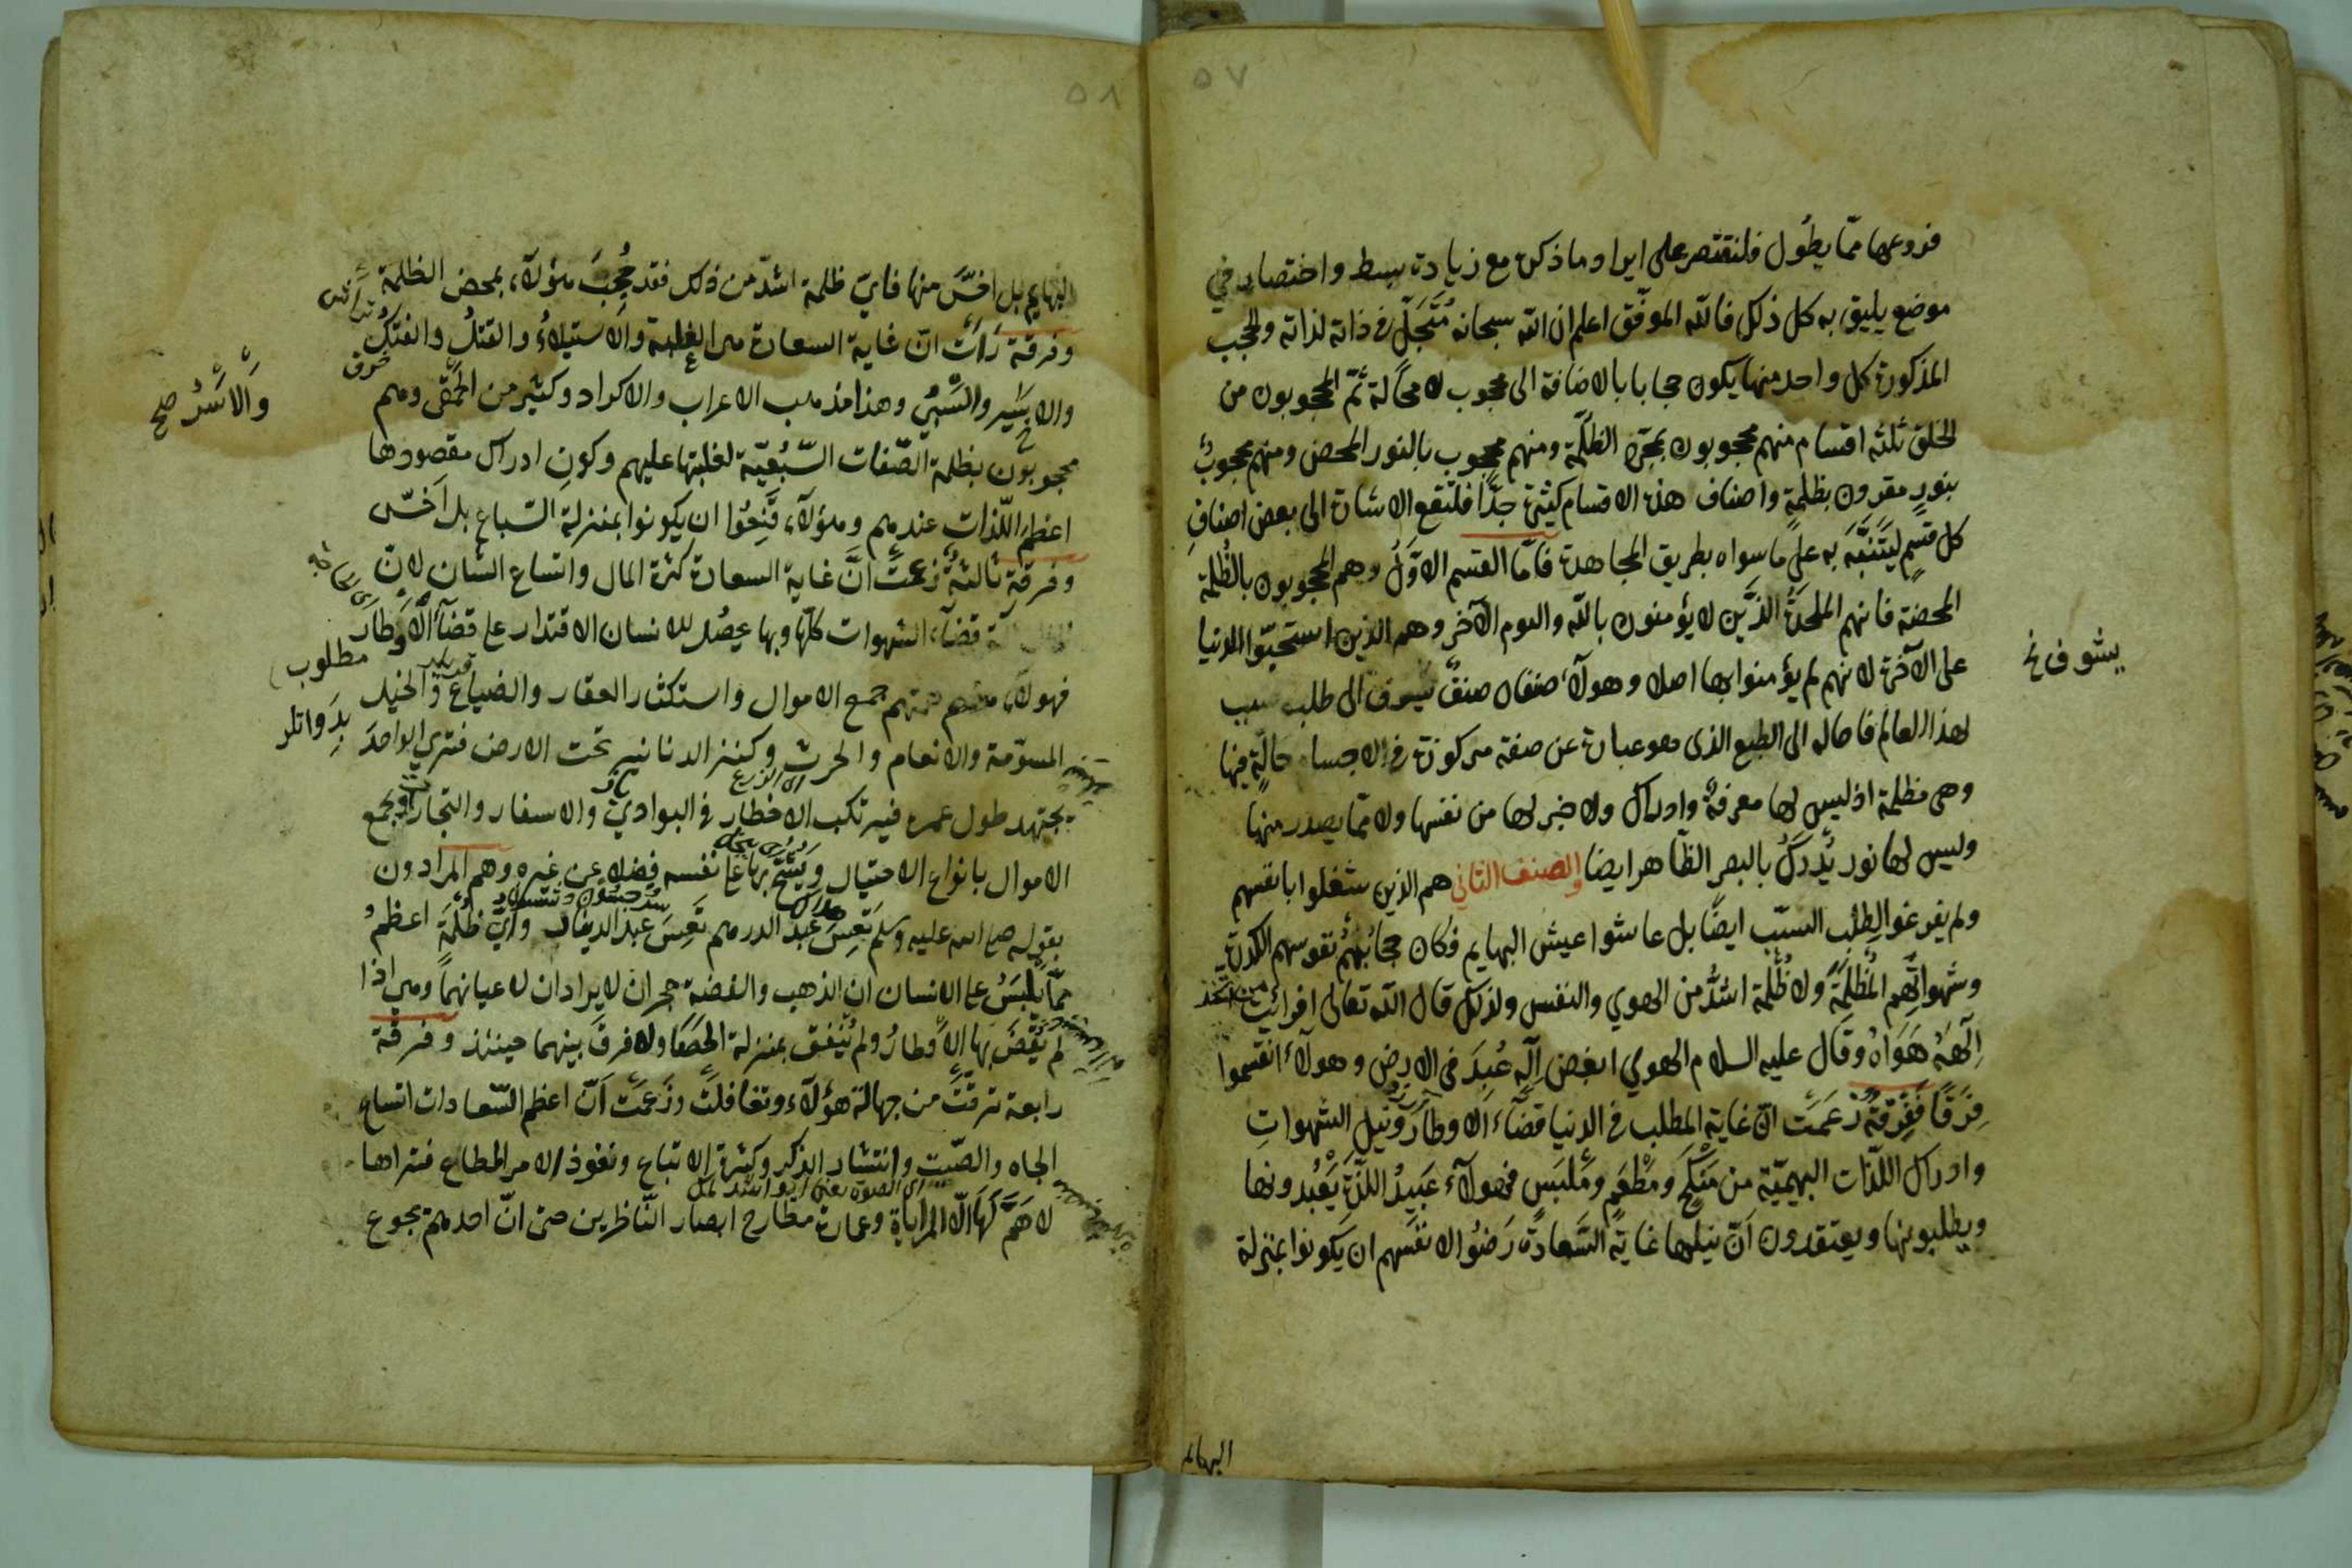 ٥٧
فروعها ممّا يطُول فلنقتصر على ايرا وما ذكره مع زيادة بسط واختصار في
موضع يليق به كل ذلك فاللّه الموفّق اعلم ان اللّه سبحانه مُتَجَلٍّ في ذاته لذاته والحجب
المذكورة كل واحد منها يكون حجابا بالاضافة الى محجوب لا محالة ثمّ المحجوبون من
الخلق ثلثه اقسام منهم محجوبون بمجرّد الظلمة ومنهم محجوب بالنور المحض ومنهم محجوبٌ
بنورٍ مقرون بظلمةٍ واصناف هذه الاقسام كثيرة جدًّا فلتقع الاشارة الى بعض اصنافِ
كل قسمٍ ليَتَنَبَّهَ به على ما سواه بطريق المجاهدة فامّا القسم الاوّلُ وهم المحجوبون بالظُلمة
المحضة فانهم الملحدَةُ الذين لا يؤمنون باللّه واليوم الآخر وهم الذين استحبّوا الدنيا
على الآخرة لانهم لم يؤمنوا بها اصلا وهولآء صنفان صنفٌ تشوف الى طلب سبب
يشوف خ
لهذا العالم فاحاله الى الطبع الذى هو عبارة عن صفة مركوزة في الاجسام حالّةٍ فيها
وهى مظلمة اذ ليس لها معرفةٌ وادراك ولا خبر لها من نفسها ولا ممّا يصدر منها
وليس لها نور يُدرَكُ بالبصر الظاهر ايضا والصنف الثاني هم الذين شغلوا بانفسهم
ولم يفرغوا لِطلب السبب ايضًا بل عاشوا عيش البهايم فكان حجابُهُم نفوسهم الكدرة
وشهواتُهم المُظلِمَةَ ولا ظُلمة اشدُّ من الهوي والنفس ولذلك قال اللّه تعالى افرأيت من اتخذ
اِلٰهَهُ هَوَاهُ وقال عليه السلام الهوي ابغض اِلٰه عُبِدَ في الارض وهولآء انقسموا
فِرَقًا فَفِرْقةٌ زعَمَت انّ غاية المطلب في الدنيا قضآء الاوطار ونيل الشهواتِ
وادراك اللذّات البهيميّة من مَنكَحٍ ومَطْعَمٍ ومَلبَسٍ فهولآء عَبيدُ اللذّة يَعْبُدونها
ويطلبونها ويعتقدون اَنّ نيلها غايةُ السَّعادة رَضُوا لانفسهم ان يكونوا بمنزلة
البهايم
٥٨
البهايم بل اخسَّ منها فايّ ظلمة اشدّ من ذلك فقد حُجِبَ هؤلآء بمحض الظلمة
وفرقة رَاَتْ انّ غاية السعادة هى الغلبة والاستيلاءُ والقتلُ والفتكُ
والاَسْرُ صح
والاسْر والسَّبْيُ وهذا مذهب الاعراب والاكراد وكثير من الحَمْقى وهم
محجوبون بظلمة الصّفات السّبُعيّة لغلبتها عليهم وكونِ ادراك مقصودها
اعظم اللّذات عندهم وهؤلآء قَنِعُوا ان يكونوا بمنزلة السّباع بل اَخسّ
وفرقة ثالثةٌ زعمَتْ انَّ غاية السعادة كثرة المال واتساع الشان لانّ
قضآء الشهوات كلّها وبها يحصُل للانسان الاقتدار على قضآء الاَوْطَار
مطلوب
فهولآء همّتهم جمع الاموال واستكثار العقار والضياع والخيل
المسوّمة والانعام والحرث وكنز الدنانير تحت الارض فترى الواحدَ
يجتهد طول عمره فيرتكب الاخطار في البوادي والاسفار والبحار ويجمع
الاموال بانواع الاحتيال ويَشُحّ بها على نفسه فضلا عن غيره وهم المرادون
بقوله صلى اللّه عليه وسلم تَعِسَ عبدُ الدرهم تَعِسَ عبد الدينار وايّ ظُلْمَة اعظمُ
ممّا يُلْبَسُ على الانسان ان الذهب والفضة حجران لا يرادان لاعيانهما وهى اذا
لم يُقْضَ بها الاوطارُ ولم يُنْفق بمنزلة الحَصا ولا فرقَ بينهما حينئذ وفرقة
رابعة ترقّت من جهالة هؤلآء وتغافلَت وزَعمَت اَنّ اعظم السّعادات اتساع
الجاه والصّيت وانتشار الذكر وكثرة الاتباع ونفوذ الامر المطاع فتراها
لا هَمَّ لَهَا الّا المراياة وعمارة مطارح ابصار النّاظرين حتى انّ احدهم يجوع